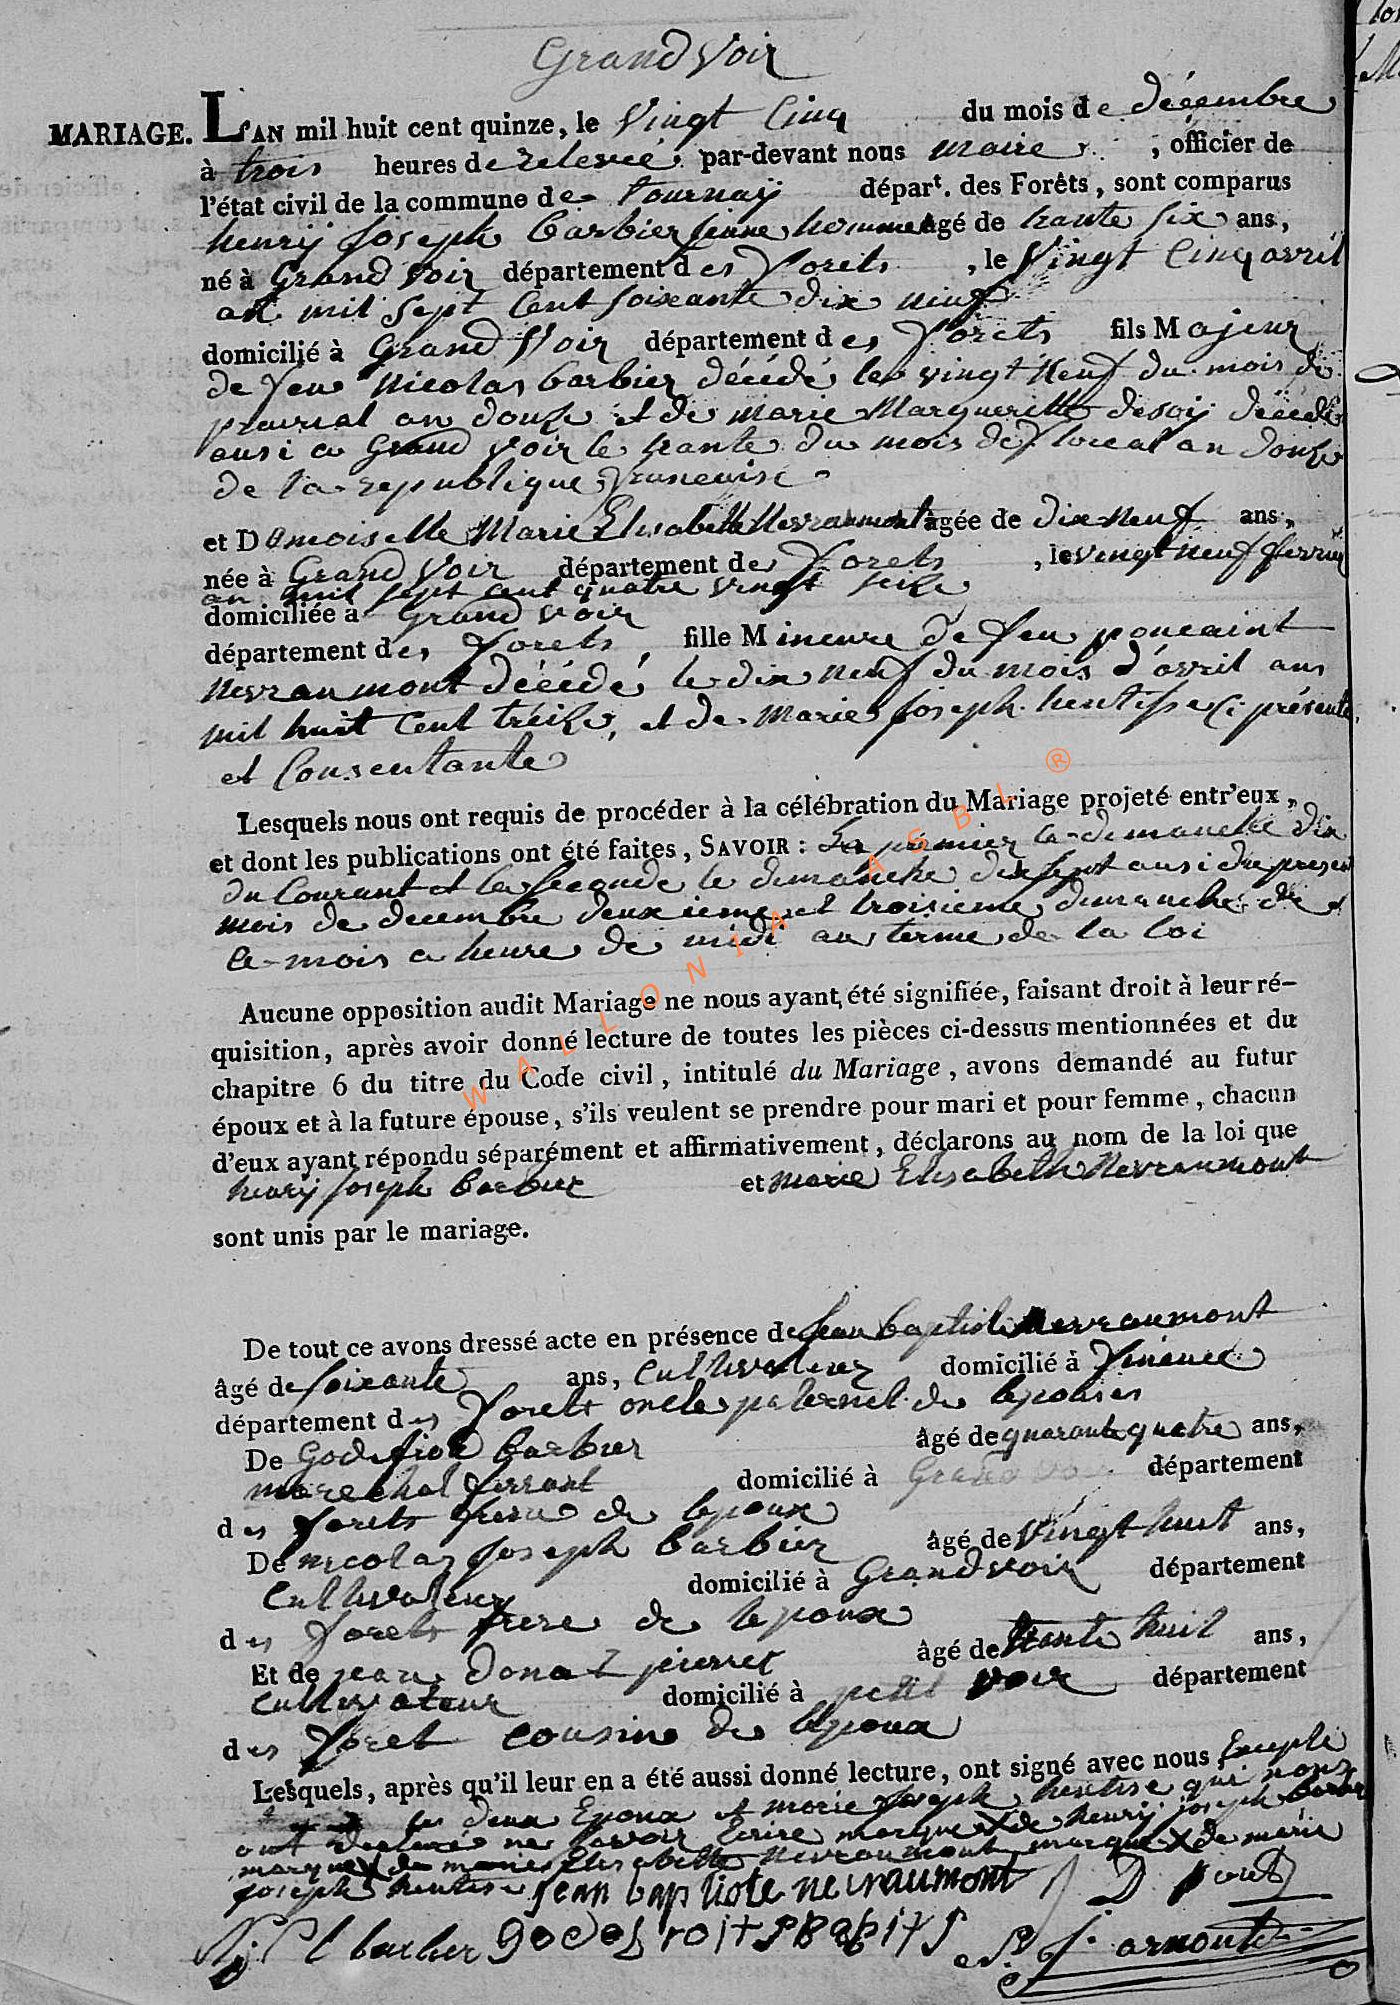 Grand Voir
MARIAGE. L'AN mil huit cent quinze, le Vingt Cinq du mois de décembre
à trois heures de relevée par-devant nous maire, officier de
l'état civil de la commune de tournay départ. des Forêts, sont comparus
henrij Joseph barbier jeune homme âgé de trante six ans,
né à Grand Voir département des forets, le Vingt Cinq avril
an mil Sept Cent Soixante dix neuf
domicilié à Grand Voir département des forets fils Majeur
de feu Nicolas barbier décédé le vingt neuf du mois de
prairial an douze et de marie Margueritte desoij décédé
ausi a Grand Voir le trante du mois de floreal an douze
de la republique francoise
et Damoiselle Marie Elisabette Nevraumont âgée de dix Neuf ans,
née à Grand Voir département des forets, le vingt neuf fevrier
an mil sept cent quatre vingt seize
domiciliée à Grand Voir
département des forets, fille Mineure de feu poncaint
Nevraumont décédé le dix neuf du mois d'avril ans
mil huit Cent tréize, et de marie Joseph hentisse Ci présente
et Consentante
Lesquels nous ont requis de procéder à la célébration du Mariage projeté entr'eux,
et dont les publications ont été faites, SAVOIR : La premier le demanche dix
du Courant et le Seconde le dimanche dix Sept ausi du present
mois de decembre deuxieme et troisieme dimanche de
Ce mois a heure de midi au terme de la loi
Aucune opposition audit Mariage ne nous ayant été signifiée, faisant droit à leur ré-
quisition, après avoir donné lecture de toutes les pièces ci-dessus mentionnées et du
chapitre 6 du titre du Code civil, intitulé du Mariage, avons demandé au futur
époux et à la future épouse, s'ils veulent se prendre pour mari et pour femme, chacun
d'eux ayant répondu séparément et affirmativement, déclarons au nom de la loi que
henrij Joseph barbier et marie Elisabeth Nevraumont
sont unis par le mariage.
De tout ce avons dressé acte en présence de Jean baptiste Nevraumont
âgé de Soixante ans, Cultivateur domicilié à
département des forets oncle paternel de lepouses
De Godefroid barbier âgé de quarante quatre ans,
marechal ferrant domicilié à Grand voir département
des forets frere de lepoux
De nicolas Joseph barbier âgé de Vingt huit ans,
Cultivateur domicilié à Grand voir département
des forets frere de lepoux
Et de jean donat pierret âgé de trante huit ans,
cultivateur domicilié à petit voir département
des foret cousin de lépoux
Lesquels, après qu'il leur en a été aussi donné lecture, ont signé avec nous Exepte
les deux Epoux et marie Joseph hentise qui nous
ont declaré ne Savoir Ecrire marque X de henrij joseph barbier
marque X de marie Elisabette Nevraumont marque X de marie
joseph hentise jean baptiste nevraumont J D pierret
N J barbier godefroit J arnould
WALLONIA ASBL ®